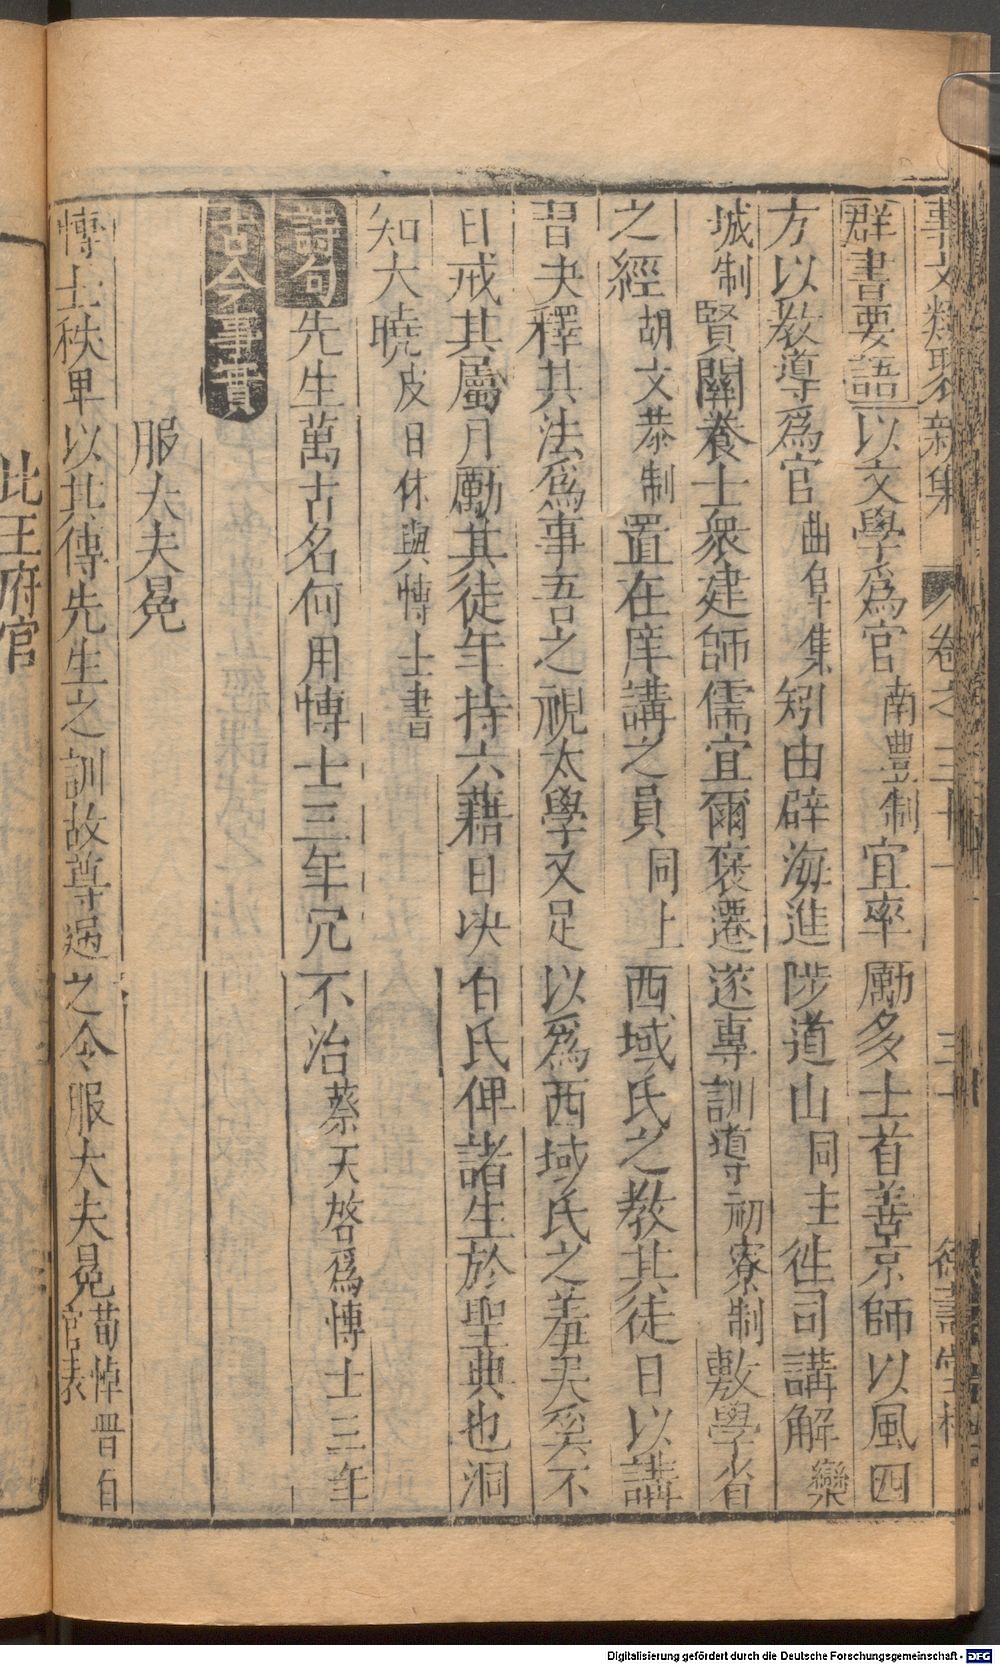 事文類聚新集 卷之三十一 三十 德壽堂梓
群書要語 以文學為官 南豐制 宜率勵多士首善京師以風四
方以教導為官 曲阜集 矧由辟海進陟道山 同主 徃司講解 欒
城制 賢關養士衆建師儒宜爾褒遷遂專訓導 初寮制 敷學省
之經 胡文恭制 置在庠講之員 同上 西域氏之教其徒日以講
習决釋其法爲事吾之視太學又足以爲西域氏之羞矣奚不
日戒其屬月勵其徒年持六藉日决百氏俾諸生於聖典也洞
知大曉 皮日休與愽士書
詩句 先生萬古名何用愽士三年冗不治 蔡天啓爲愽士三年
古今事實
服大夫冕
愽士秩卑以其傳先生之訓故尊遇之令服大夫冕 荀倬晋百官表
此王府官
Digitalisierung gefördert durch die Deutsche Forschungsgemeinschaft - DFG